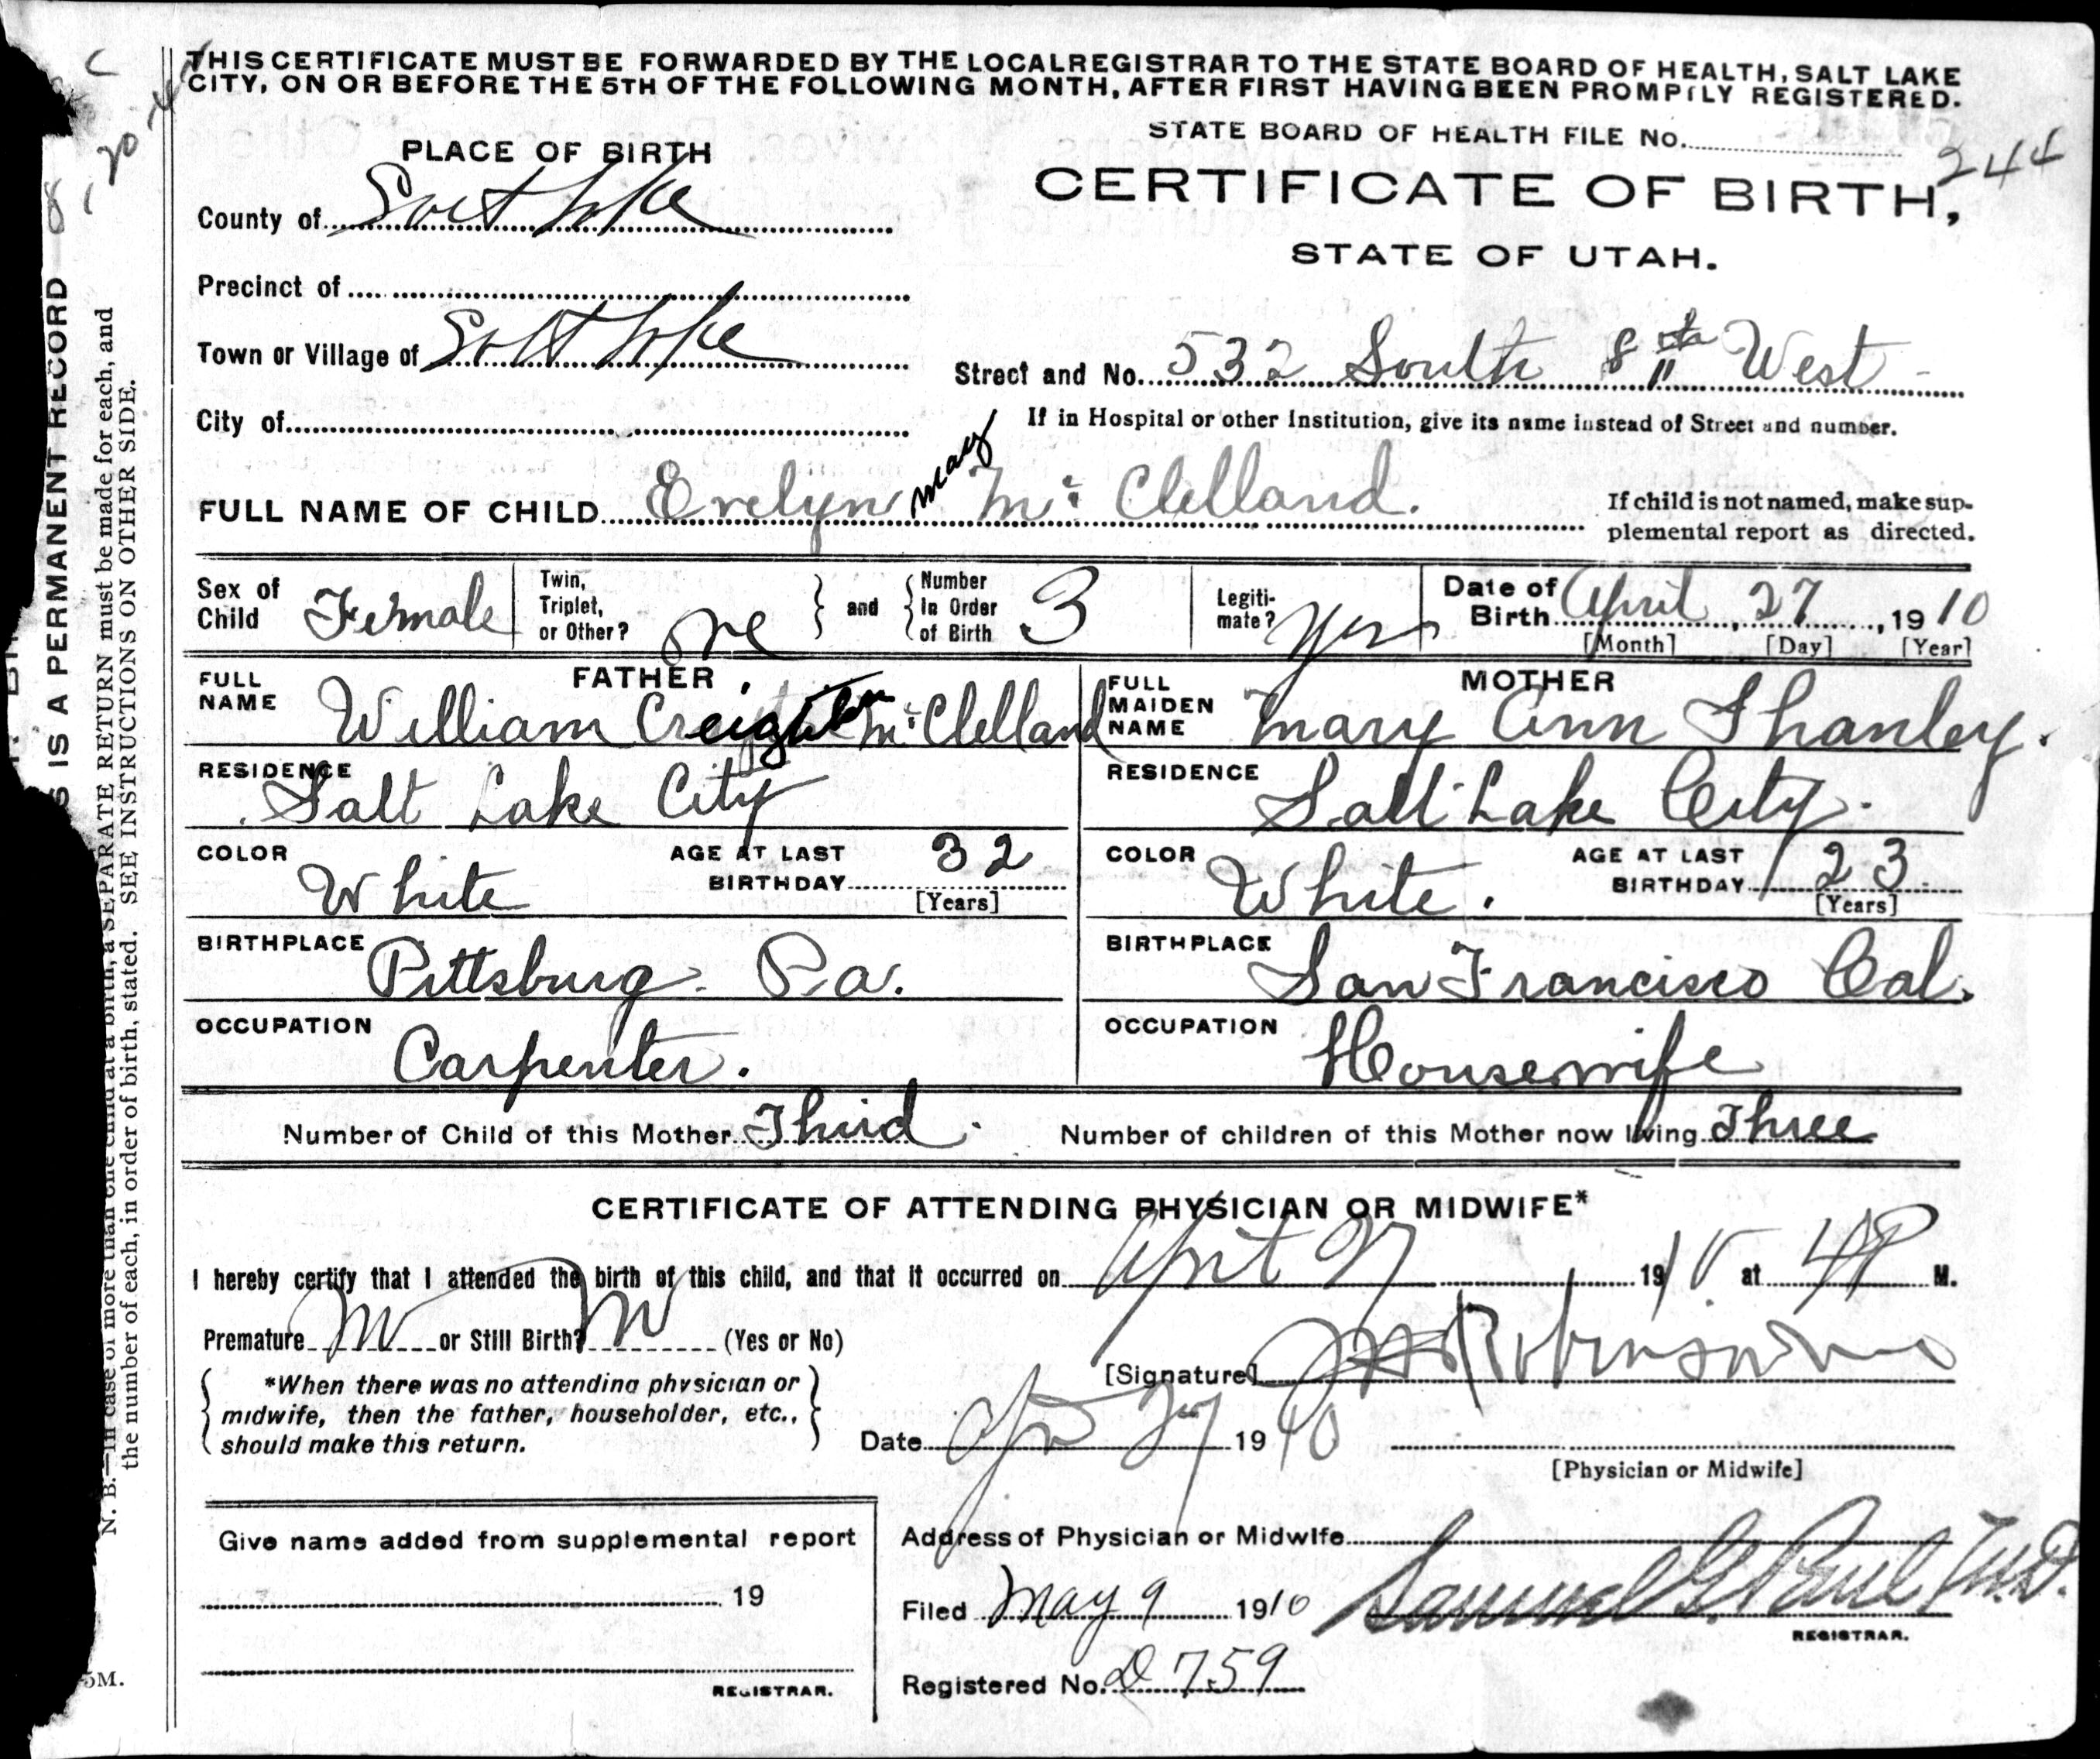 THIS CERTIFICATE MUST BE FORWARDED BY THE LOCAL REGISTRAR TO THE STATE BOARD OF HEALTH, SALT LAKE
CITY, ON OR BEFORE THE 5TH OF THE FOLLOWING MONTH, AFTER FIRST HAVING BEEN PROMPTLY REGISTERED.
STATE BOARD OF HEALTH FILE No.
244
PLACE OF BIRTH
CERTIFICATE OF BIRTH,
STATE OF UTAH.
County of Salt Lake
Precinct of
Town or Village of Salt Lake
Street and No. 532 South 8th West
City of
If in Hospital or other Institution, give its name instead of Street and number.
FULL NAME OF CHILD Evelyn may Mc Clelland.
If child is not named, make sup-
plemental report as directed.
Sex of Child Female
Twin, Triplet, or Other? one
and
Number In Order of Birth 3
Legiti-mate? Yes
Date of Birth April, 27, 1910
[Month] [Day] [Year]
FATHER
FULL NAME William Creighton McClelland
RESIDENCE
Salt Lake City
COLOR White
AGE AT LAST BIRTHDAY 32
[Years]
BIRTHPLACE Pittsburg. Pa.
OCCUPATION Carpenter.
MOTHER
FULL MAIDEN NAME Mary Ann Shanley.
RESIDENCE
Salt Lake City.
COLOR White.
AGE AT LAST BIRTHDAY 23
[Years]
BIRTHPLACE San Francisco Cal.
OCCUPATION Housewife
Number of Child of this Mother Third.
Number of children of this Mother now living Three
CERTIFICATE OF ATTENDING PHYSICIAN OR MIDWIFE*
I hereby certify that I attended the birth of this child, and that it occurred on April 27 1910 at 4 P M.
Premature or Still Birth? (Yes or No)
[Signature] Robinson
*When there was no attending physician or
midwife, then the father, householder, etc.,
should make this return.
Date Apr 27 1910
[Physician or Midwife]
Give name added from supplemental report
19
REGISTRAR.
Address of Physician or Midwife
Filed May 9 1910 Samuel G. Paul M.D.
REGISTRAR.
Registered No. D 759
S IS A PERMANENT RECORD
N. B.—In case of more than one child at a birth, a SEPARATE RETURN must be made for each, and
the number of each, in order of birth, stated. SEE INSTRUCTIONS ON OTHER SIDE.
5M.